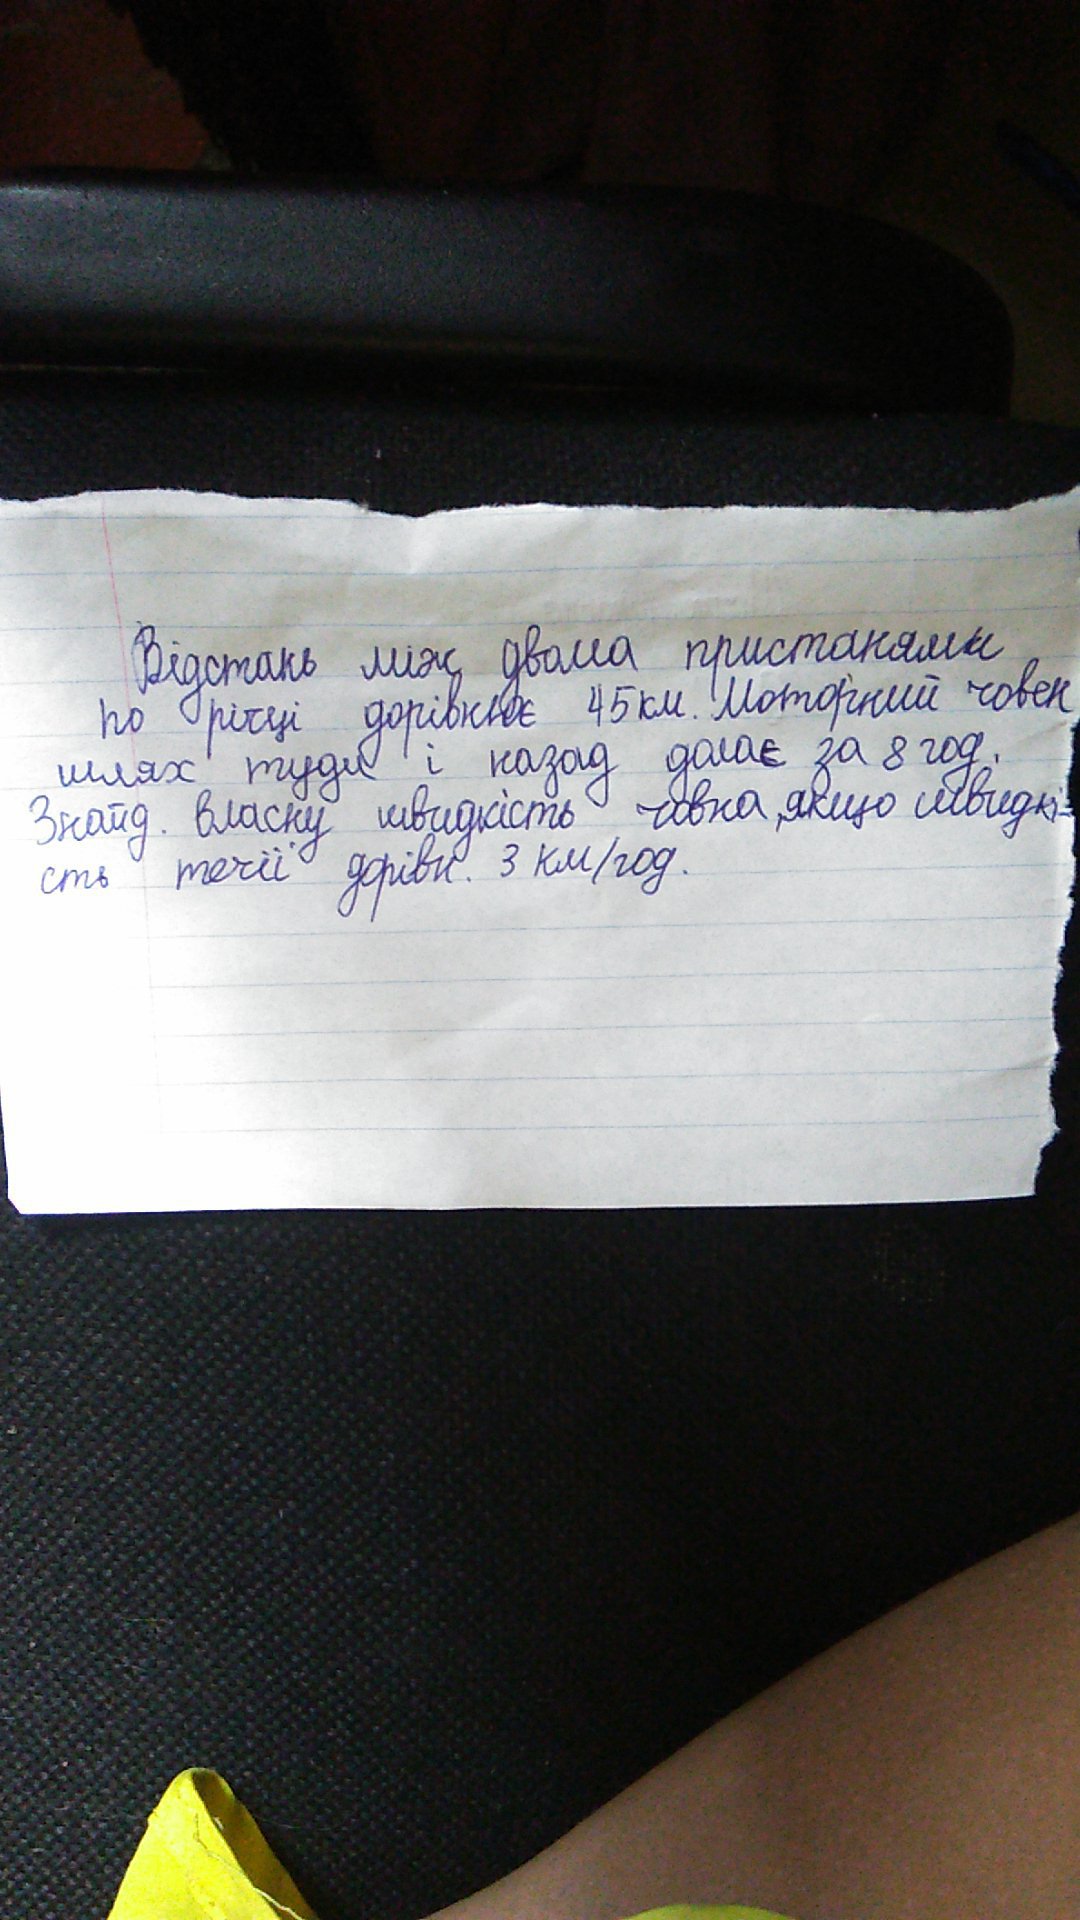 Відстань між двома пристанями
по річці дорівнює 45 км. Моторний човен
шлях туди і назад долає за 8 год.
Знайд. власну швидкість човна, якщо швидкі-
сть течії дорівн. 3 км/год.